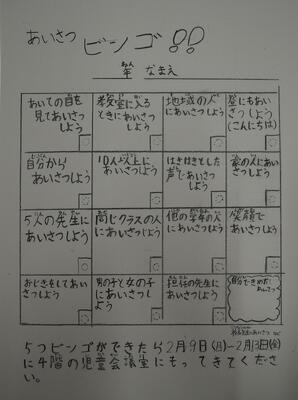 あいさつ ビンゴ!!
年 なまえ
あいての目を
見てあいさつ
しよう
教室に入る
ときにあいさつ
しよう
地域の人
にあいさつ
しよう
昼にもあい
さつしよう
(こんにちは)
自分から
あいさつしよう
10人以上に
あいさつ
しよう
はきはきとした
声であいさつ
しよう
家の人にあい
さつしよう
5人の先生に
あいさつしよう
同じクラスの人
にあいさつ
しよう
他の学年の人
にあいさつ
しよう
笑顔で
あいさつ
しよう
おじぎをしてあい
さつしよう
男の子と女の子
にあいさつし
よう
担任の先生に
あいさつ
しよう
自分できめた
あいさつ
5つビンゴができたら2月9日(月)~2月13日(金)
に4階の児童会議室にもってきてくださ
い。